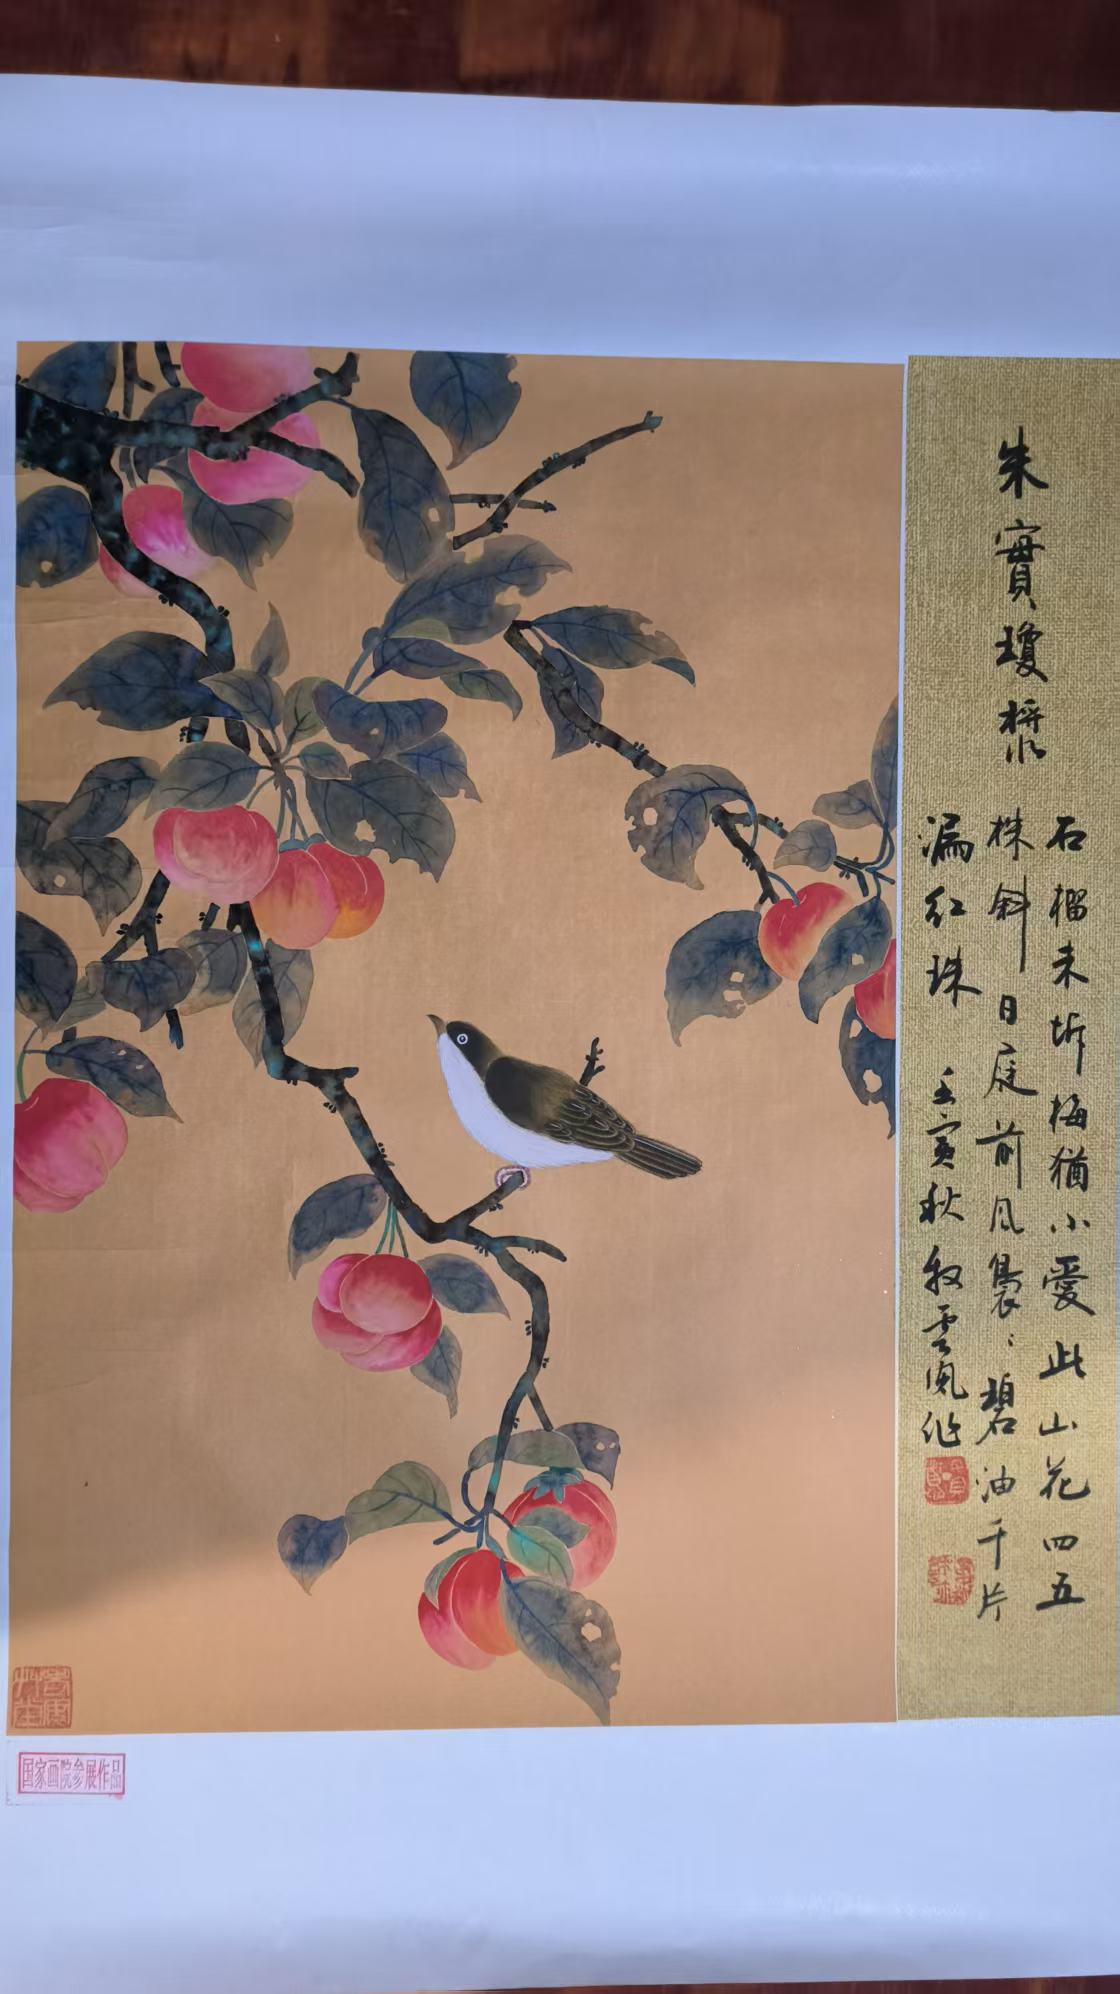 朱實瓊蕤
石榴未坼梅猶小愛此山花四五
株斜日庭前風裊〻碧油千片
漏紅珠 壬寅秋 牧雲風作
国家画院参展作品